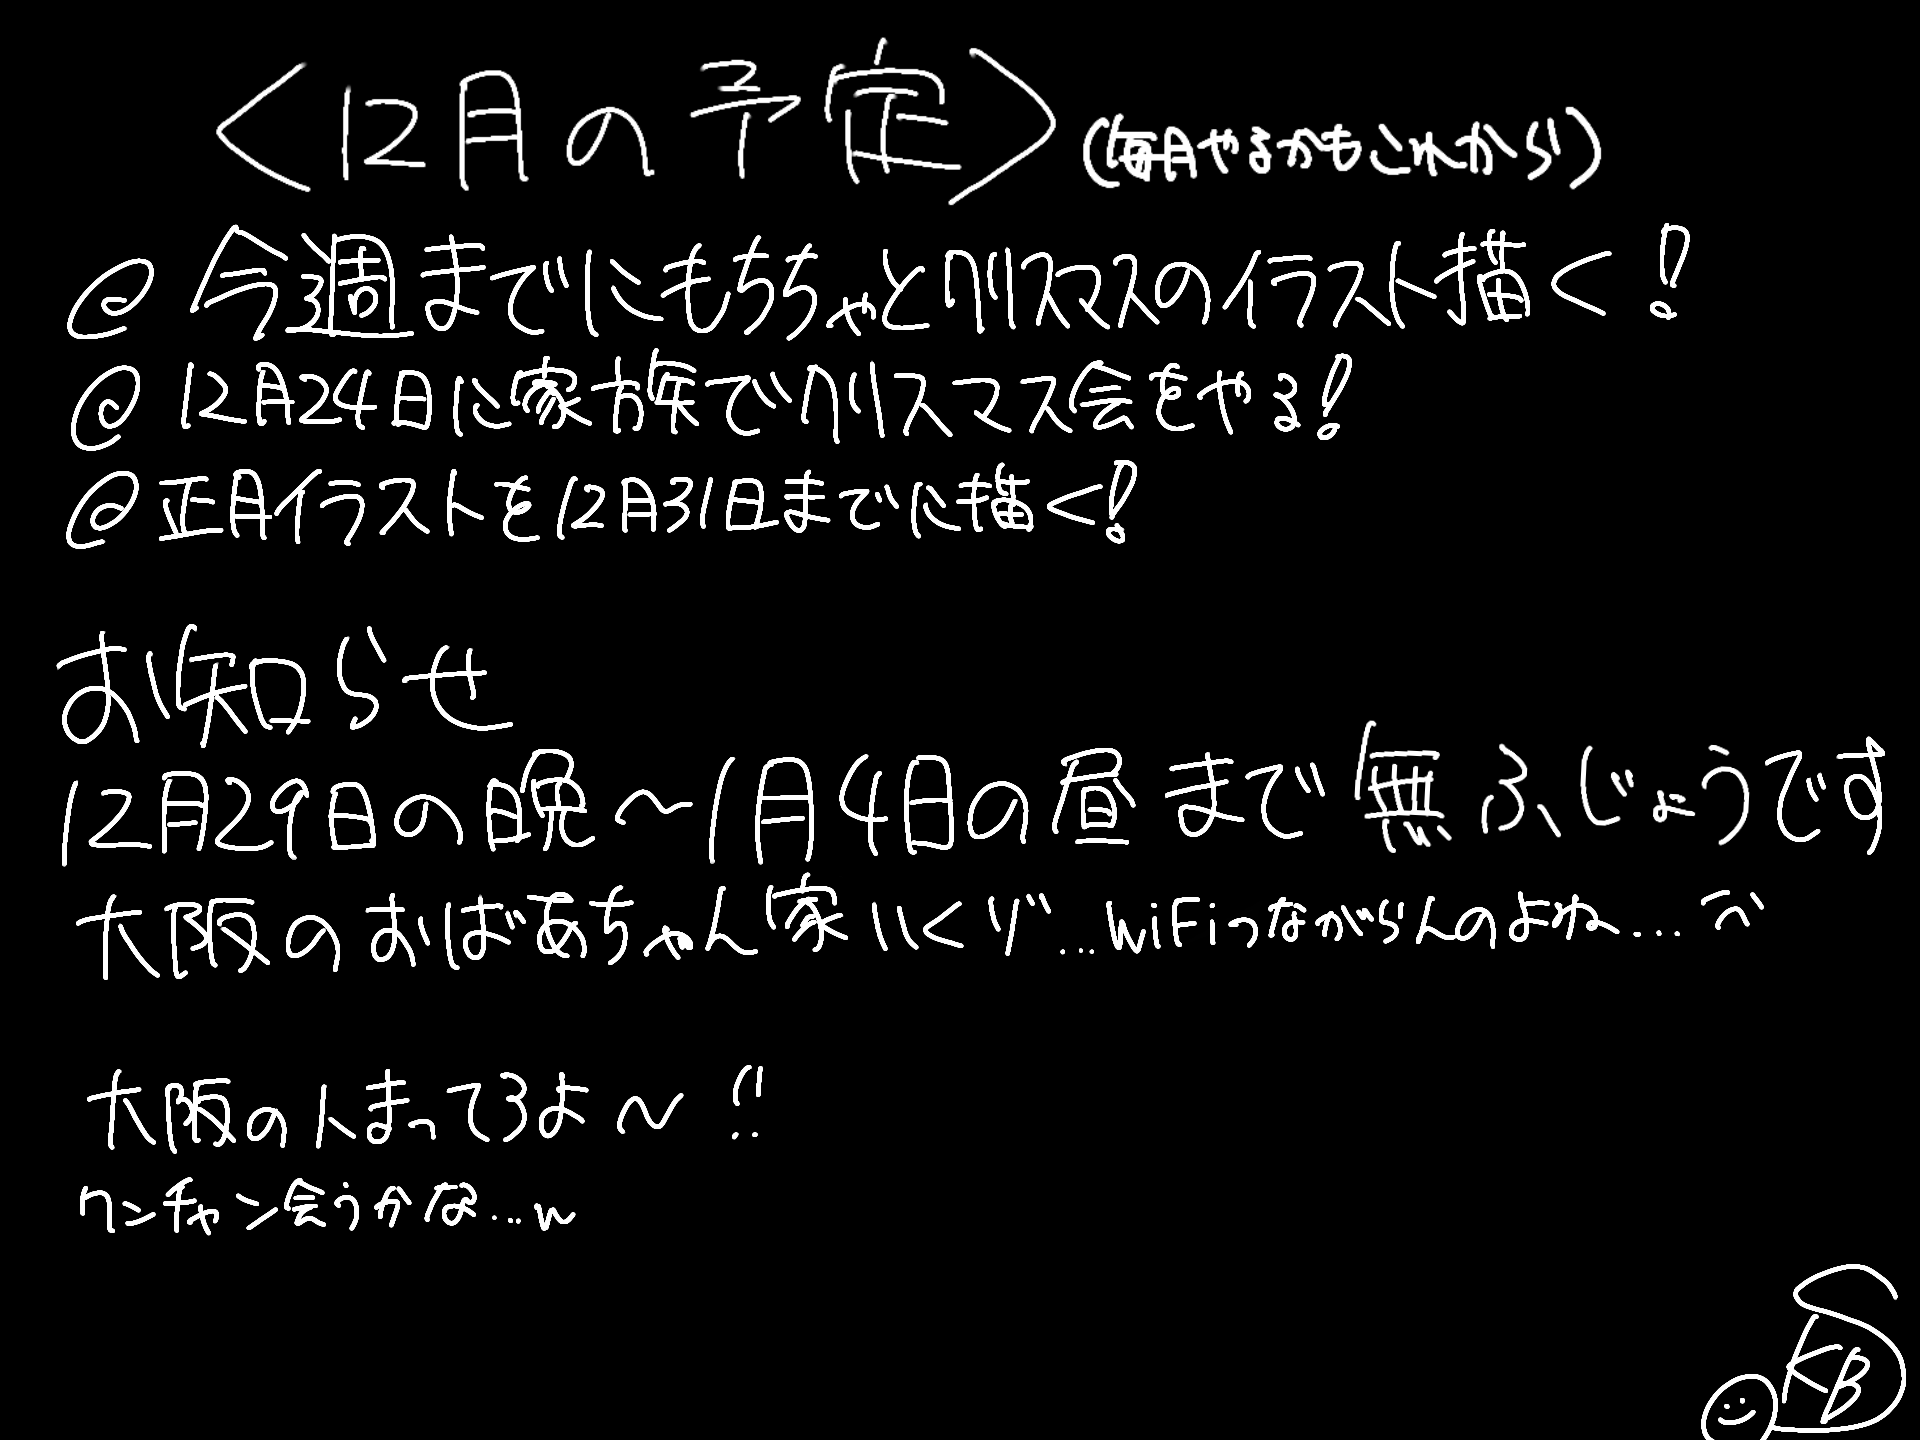 <12月の予定>(毎月やるかもこれから)
@ 今週までにもちちゃとクリスマスのイラスト描く!
@ 12月24日に家族でクリスマス会をやる!
@ 正月イラストを12月31日までに描く!
お知らせ
12月29日の晩〜1月4日の昼まで無ふじょうです
大阪のおばあちゃん家いくッ゙...WiFiつながらんのよね...
大阪の人まってろよ〜!!
ワンチャン会うかな...w
KB